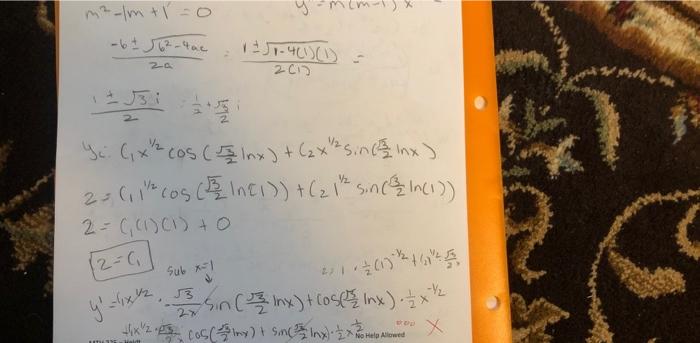 m² - 1m + 1 = 0
y' = m(m-1) x
-b ± √b²-4ac / 2a = 1 ± √1-4(1)(1) / 2(1) =
1 ± √3 i / 2 = 1/2 ± √3/2 i
yc: C₁x^1/2 cos(√3/2 lnx) + C₂x^1/2 sin(√3/2 lnx)
2 = C₁1^1/2 cos(√3/2 ln(1)) + C₂1^1/2 sin(√3/2 ln(1))
2 = C₁(1)(1) + 0
2 = C₁
sub x=1
1 · 1/2(1)^-1/2 +
y' = C₁x^1/2 · -√3/2x sin(√3/2 lnx) + cos(√3/2 lnx) · 1/2 x^-1/2
cos(√3/2 lnx) + sin(√3/2 lnx) · 1/2 x
No Help Allowed
X